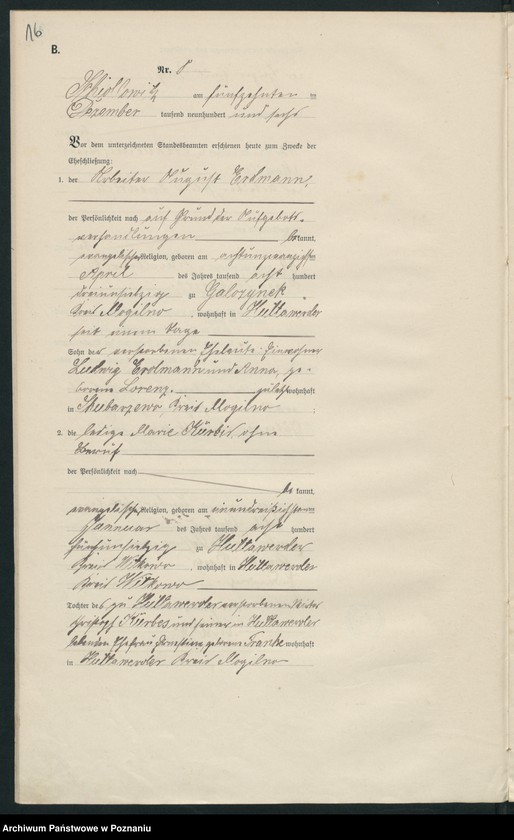 16
B.
Nr. 8
am fünfzehnten ten
Dezember tausend neunhundert und sechs
Vor dem unterzeichneten Standesbeamten erschienen heute zum Zwecke der
Eheschließung:
1. der Arbeiter August Erdmann,
der Persönlichkeit nach auf Grund der Aufgebots-
verhandlungen bekannt,
evangelischer Religion, geboren am achtundzwanzigsten
April des Jahres tausend acht hundert
dreiundsiebzig zu Galczynek
Kreis Mogilno, wohnhaft in Huttawerder
seit einem Tage
Sohn der verstorbenen Eheleute: Einwohner
Ludwig Erdmann und Anna, ge-
borene Lorenz. zuletzt wohnhaft
in Skubarzewo, Kreis Mogilno ;
2. die ledige Marie Kürbis ohne
Beruf
der Persönlichkeit nach
be kannt,
evangelischer Religion, geboren am einunddreißigsten
Januar des Jahres tausend acht hundert
fünfundsiebzig zu Huttawerder
Kreis Witkowo, wohnhaft in Huttawerder
Kreis Witkowo
Tochter des zu Huttawerder verstorbenen
Christoph Kürbis und seiner in Huttawerder
lebenden Ehefrau Ernestine geborene Franke wohnhaft
in Huttawerder Kreis Mogilno
Archiwum Państwowe w Poznaniu